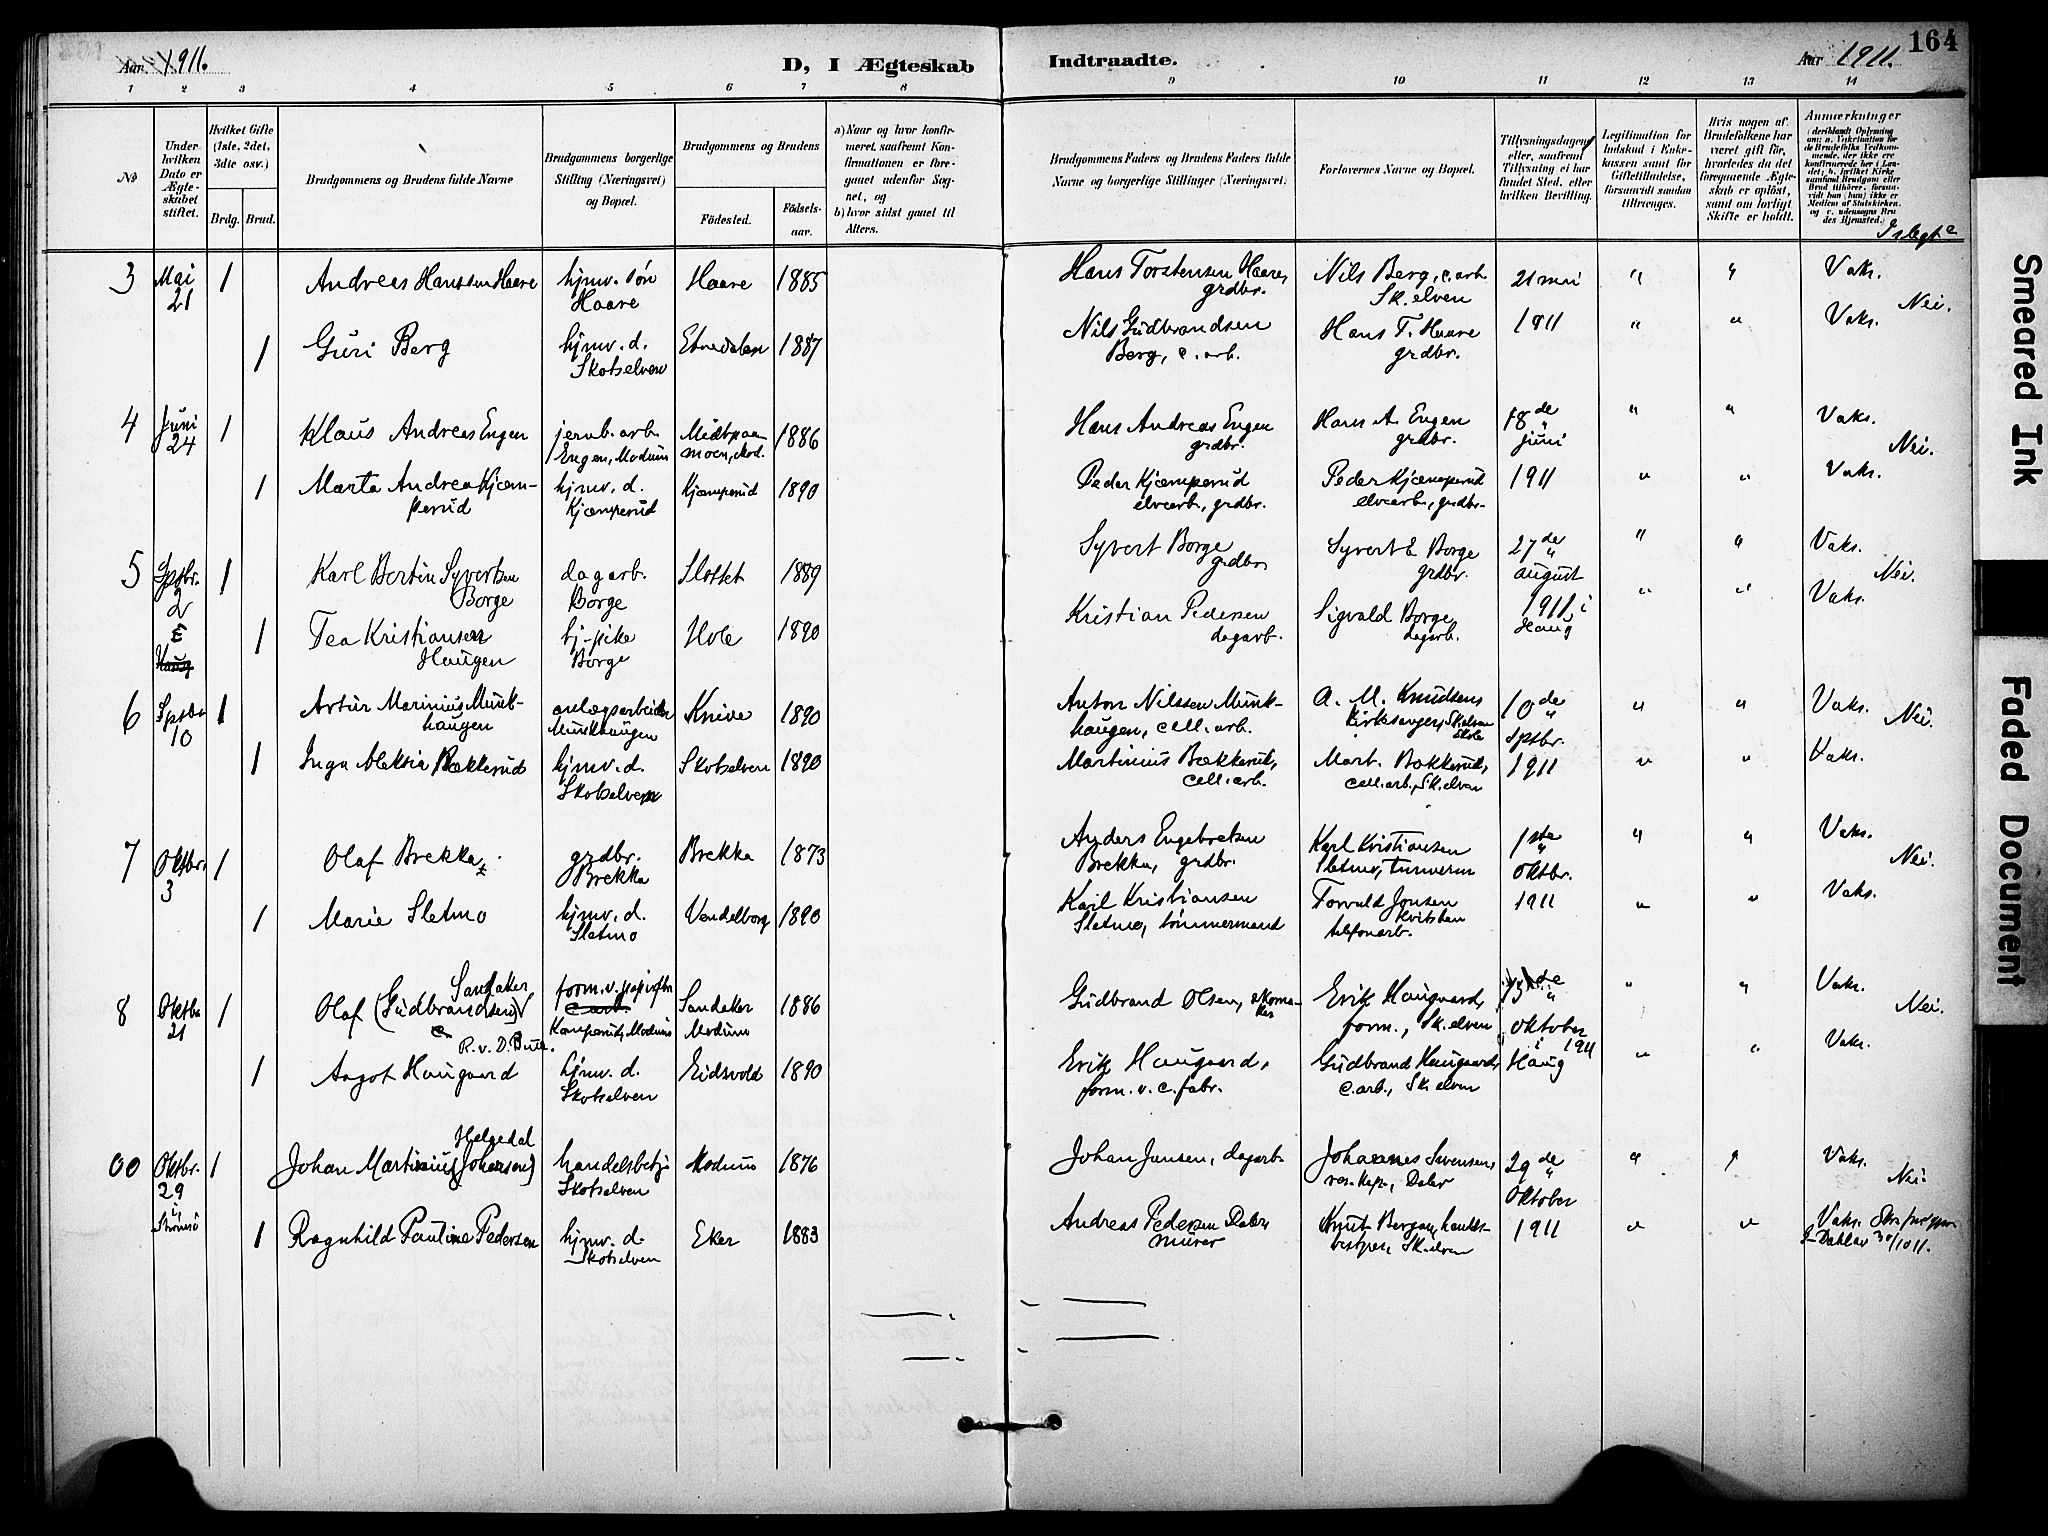 Aar 1911.
D, I Ægteskab Indtraadte.
Aar 1911.
164
1 2 3 4 5 6 7 8 9 10 11 12 13 14
No
Under hvilken Dato er Ægteskabet stiftet.
Hvilket Gifte (1ste, 2det, 3die osv.)
Brdg. Brud.
Brudgommens og Brudens fulde Navne
Brudgommens borgerlige Stilling (Næringsvei) og Bopæl.
Brudgommens og Brudens
Fødested. Fødselsaar.
a) Naar og hvor konfirmeret, saafremt Konfirmationen er foregaaet udenfor Sognet, og
b) hvor sidst gaaet til Alters.
Brudgommens Faders og Brudens Faders fulde Navne og borgerlige Stillinger (Næringsvei)
Forlovernes Navne og Bopæl.
Tillysningsdagen eller, saafremt Tillysning ei har fundet Sted, efter hvilken Bevilling.
Legitimation for Indskud i Enkekassen samt for Giftetilladelse, forsaavidt saadan tiltrænges.
Hvis nogen af Brudefolkene har været gift før, hvorledes da det foregaaende Ægteskab er opløst, samt om lovligt Skifte er holdt.
Anmærkninger
I slegt?
3 Mai 21 1 Andreas Hanssen Haare hjmv. søn Haare Haare 1885 Hans Torstensen Haare, grdbr. Nils Berg, c. arb. Sk.elven 21 mai " " Vaks. Nei.
1 Guri Berg hjmv. d. Skotselven Etnedalen 1887 Nils Gudbrandsen Berg, c. arb. Hans T. Haare grdbr. 1911 " " Vaks.
4 Juni 24 1 Klaus Andreas Engen jernb. arb. Engen, Modum 1886 Hans Andreas Engen grdbr. Hans A. Engen grdbr. 18 de juni " " Vaks. Nei.
1 Marta Andrea Kjæmperud hjmv. d. Kjæmperud Kjæmperud 1890 Peder Kjæmperud elvearb., grdbr. Peder Kjæmperud elvearb., grdbr. 1911 " " Vaks.
5 Sptbr. 2 1 Karl Bertin Syvertsen Borge dagarb. Borge Slottet 1889 Syvert Borge grdbr. Syvert E Borge grdbr. 27 de august " " Vaks. Nei.
Haug
1 Tea Kristiansen Haugen tj-pike Borge Hole 1890 Kristian Pedersen dagarb. Sigvald Borge dagarb. 1911 i Haug " " Vaks.
6 Sptbr 10 1 Artur Marinius Munkhaugen anlægsarbeider Munkhaugen Knive 1890 Anton Nilssen Munkhaugen, cell. arb. A. M. Knudsen, kirkesanger, Sk.elven Skole 10 de Sptbr. " " Vaks. Nei.
1 Inga Aleksia Bækkerud hjmv. d. Skotselven Skotselven 1890 Martinius Bækkerud, cell. arb. Mart. Bækkerud, cell. arb., Sk.elven 1911 " " Vaks.
7 Oktbr. 3 1 Olaf Brekka grdbr. Brekka Brekka 1873 Anders Engebretsen Brekka, grdbr. Karl Kristiansen Sletmo, tømmerm 1ste oktbr. " " Vaks. Nei.
1 Marie Sletmo hjmv. d. Sletmo Vendelborg 1890 Karl Kristiansen Sletmo, tømmermand Torvald Jonsen telefonarb. 1911 " " Vaks.
8 Oktbr 21 1 Olaf (Gudbrandsen) Sandaker R. v. D. Bull. form. v. papirfbr. c. arb. Kamperud, Modum Sandaker Modum 1886 Gudbrand Olsen, skomaker Erik Haugaard, form., Sk.elven 15 de oktober 1911 i Haug " " Vaks. Nei.
1 Aagot Haugaard hjmv. d. Skotselven Eidsvold 1890 Erik Haugaard, form. v. c. fabr. Gudbrand Haugaard, c. arb., Sk.elven " " Vaks.
00 Oktbr. 29 i Strømsø 1 Johan Martinius (Johansen) Helgedal handelsbetj. Skotselven Modum 1876 Johan Jansen, dagarb. Johannes Svensen, res. kap., Døler 29 de Oktober " " Vaks. Nei.
1 Ragnhild Pauline Pedersen hjmv. d. Skotselven Eker 1883 Andreas Pedersen murer Knut Bergan, handelsbestyrer, Sk.elven 1911 " " Vaks. 30/10 11.
Smeared Ink
Faded Document